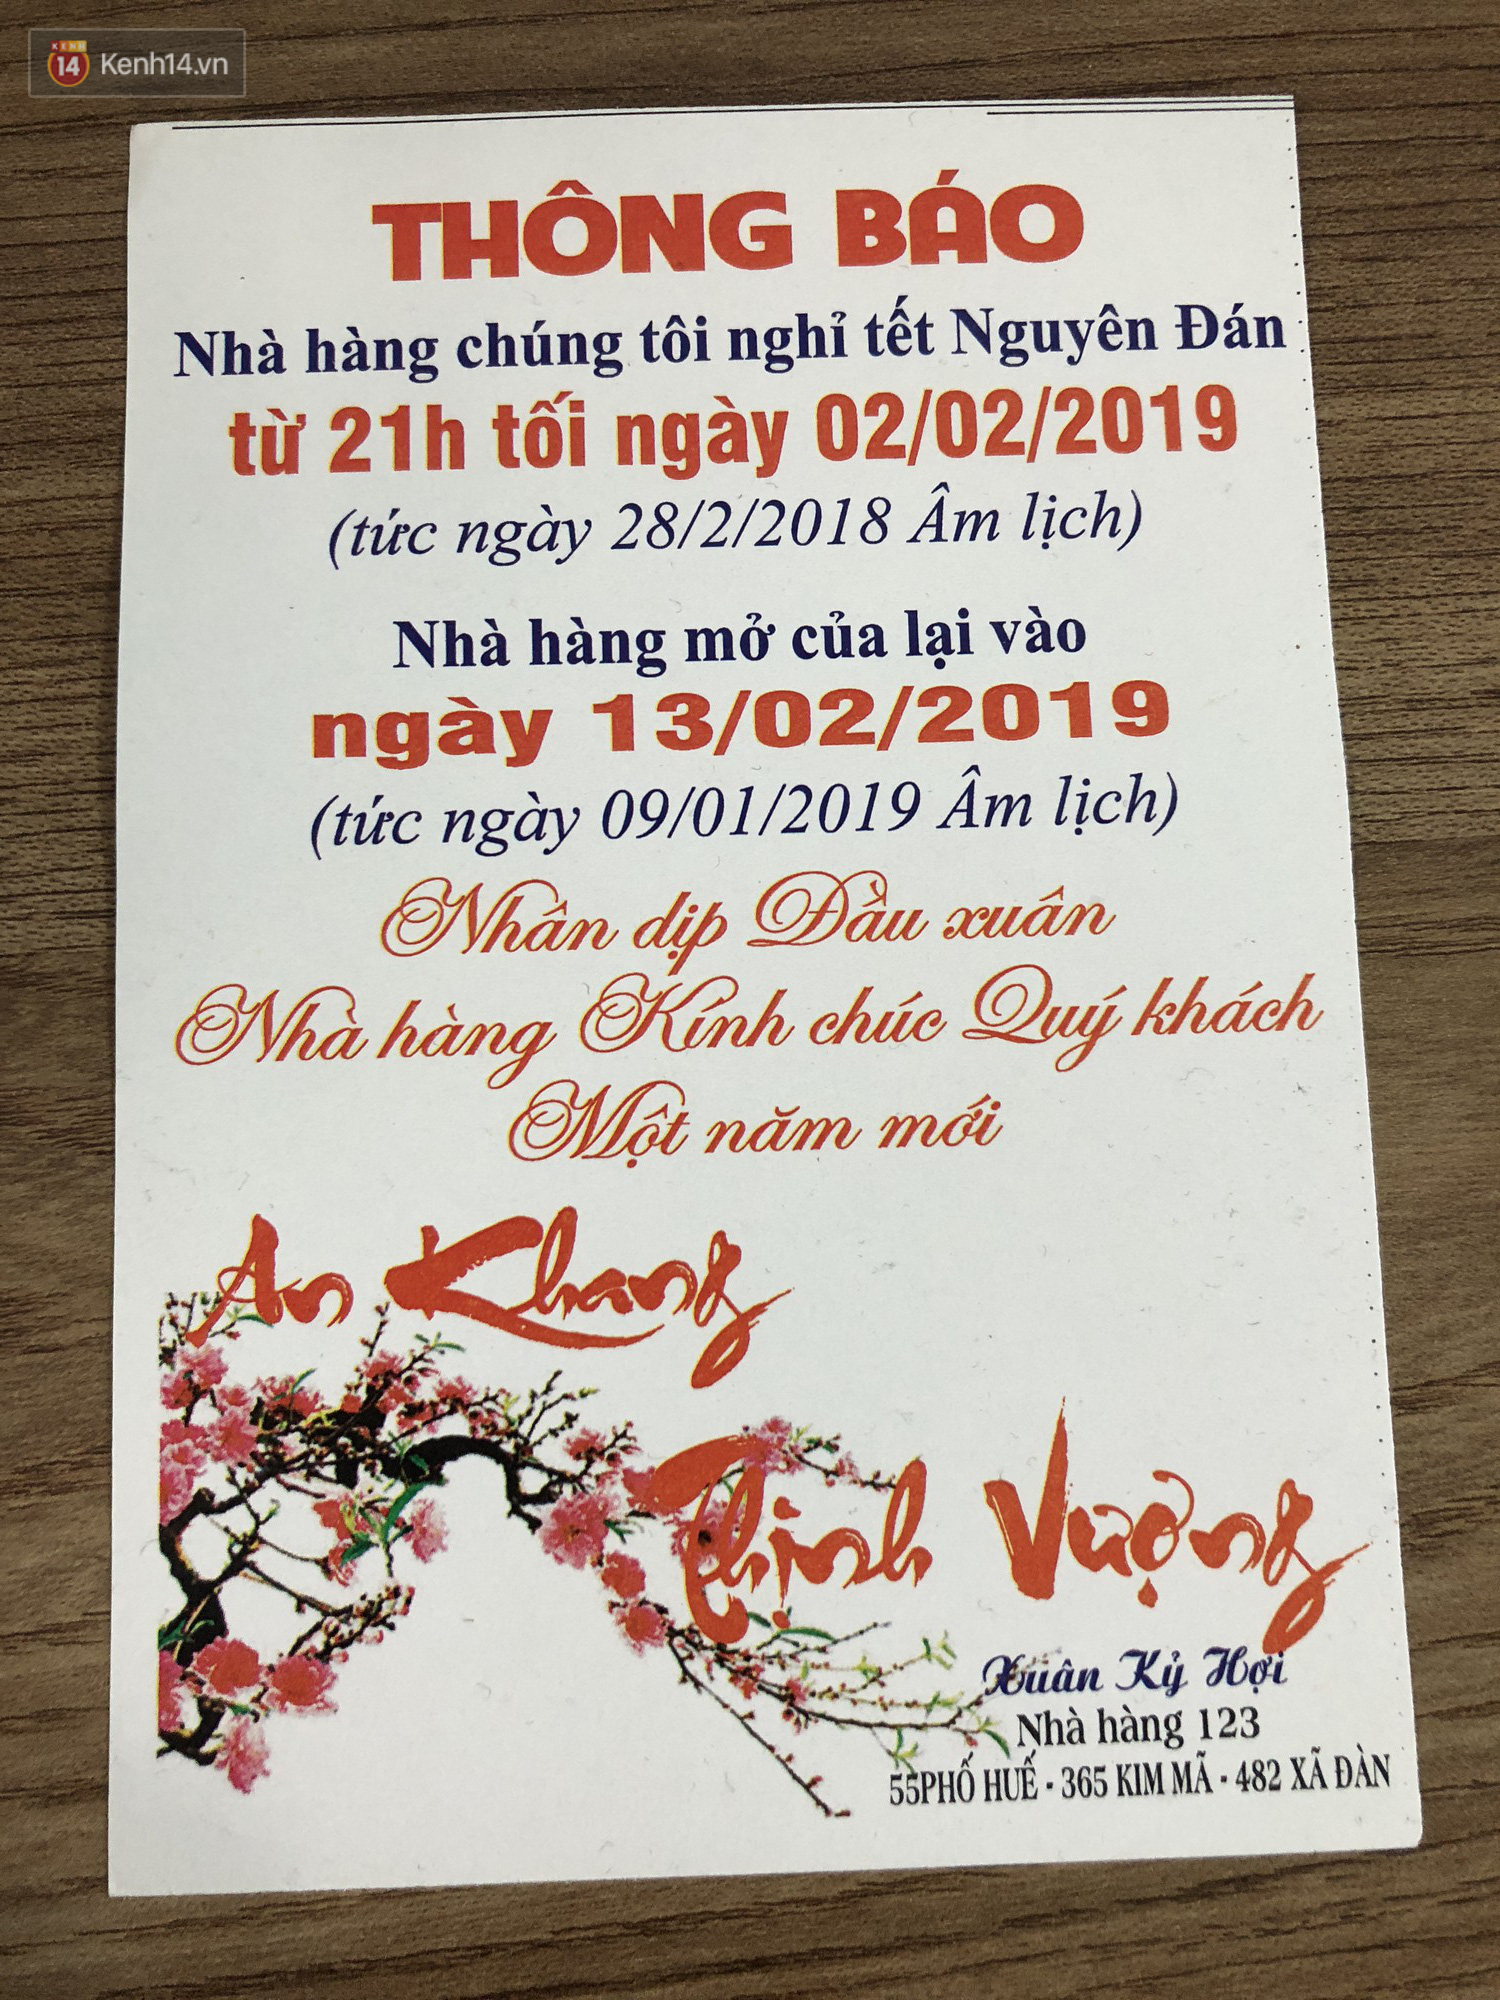 KENH
14 Kenh14.vn
THÔNG BÁO
Nhà hàng chúng tôi nghỉ tết Nguyên Đán
từ 21h tối ngày 02/02/2019
(tức ngày 28/2/2018 Âm lịch)
Nhà hàng mở của lại vào
ngày 13/02/2019
(tức ngày 09/01/2019 Âm lịch)
Nhân dịp Đầu xuân
Nhà hàng Kính chúc Quý khách
Một năm mới
An Khang
Thịnh Vượng
Xuân Kỷ Hợi
Nhà hàng 123
55PHỐ HUẾ - 365 KIM MÃ - 482 XÃ ĐÀN